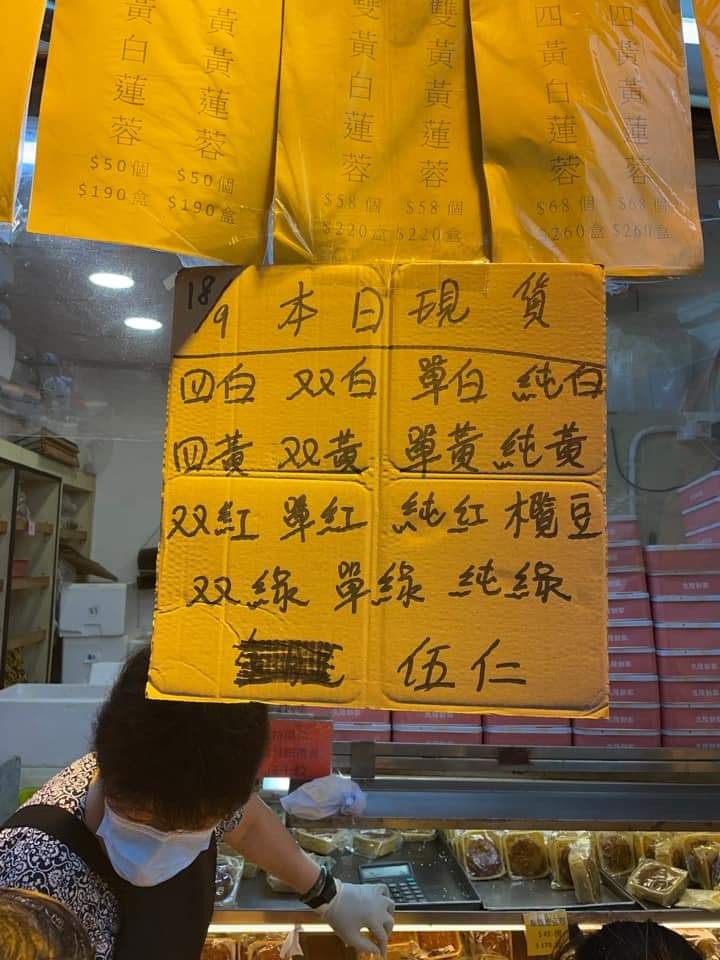 黃白蓮蓉
$50個
$190盒
黃黃蓮蓉
$50個
$190盒
雙黃白蓮蓉
$58個
$220盒
雙黃黃蓮蓉
$58個
$220盒
四黃白蓮蓉
$68個
$260盒
四黃黃蓮蓉
$68個
$260盒
18/9 本日現貨
四白 双白 單白 純白
四黃 双黃 單黃 純黃
双紅 單紅 純紅 欖豆
双綠 單綠 純綠
伍仁